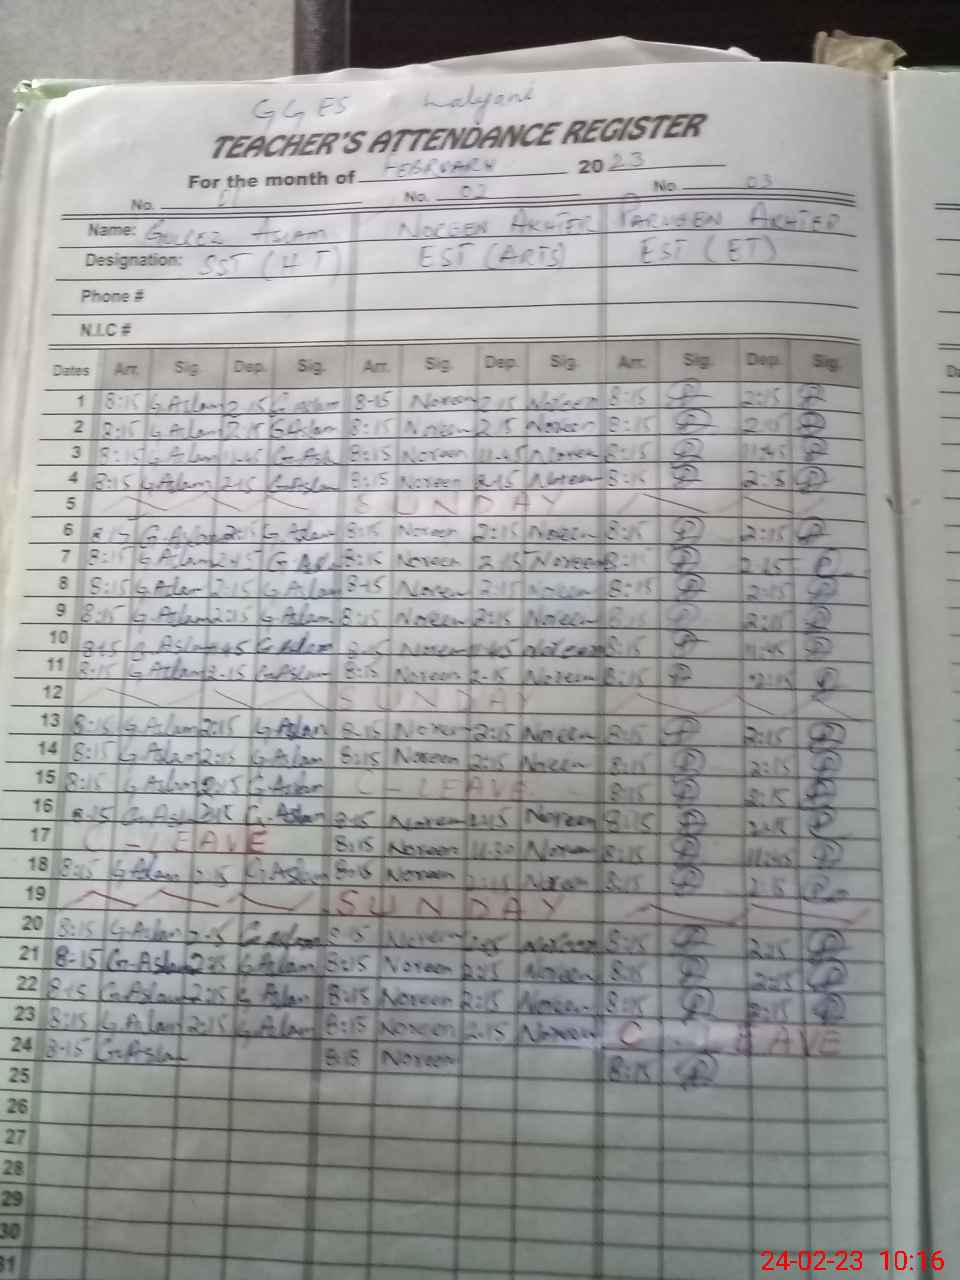 GGES
TEACHER'S ATTENDANCE REGISTER
For the month of FEBRUARY 2023
No. 01 No. 02 No. 03
Name: Aslam NOREEN AKHTER PARVEEN AKHTER
Designation: SST (HT) EST (ARTS) EST (ET)
Phone #
N.I.C #
Dates Arr. Sig. Dep. Sig. Arr. Sig. Dep. Sig. Arr. Sig. Dep. Sig.
1 8:15 G.Aslam 2:15 G.Aslam 8:15 Noreen 2:15 Noreen 8:15 2:15
2 8:15 G.Aslam 2:15 G.Aslam 8:15 Noreen 2:15 Noreen 8:15 2:15
3 8:15 G.Aslam 11:45 8:15 Noreen 11:45 Noreen 8:15 11:45
4 8:15 G.Aslam 2:15 G.Aslam 8:15 Noreen 2:15 Noreen 8:15 2:15
5 SUNDAY
6 8:15 G.Aslam 2:15 G.Aslam 8:15 Noreen 2:15 Noreen 8:15 2:15
7 8:15 G.Aslam 2:15 8:15 Noreen 2:15 Noreen 8:15 2:15
8 8:15 G.Aslam 2:15 G.Aslam 8:15 Noreen 2:15 Noreen 8:15 2:15
9 8:15 G.Aslam 2:15 G.Aslam 8:15 Noreen 2:15 Noreen 8:15 2:15
10 8:15 G.Aslam 11:45 G.Aslam 8:15 Noreen 11:45 Noreen 8:15 11:45
11 8:15 G.Aslam 2:15 G.Aslam 8:15 Noreen 2:15 Noreen 8:15 2:15
12 SUNDAY
13 8:15 G.Aslam 2:15 G.Aslam 8:15 Noreen 2:15 Noreen 8:15 2:15
14 8:15 G.Aslam 2:15 G.Aslam 8:15 Noreen 2:15 Noreen 8:15 2:15
15 8:15 G.Aslam 2:15 G.Aslam C-LEAVE 8:15 2:15
16 8:15 G.Aslam 2:15 G.Aslam 8:15 Noreen 2:15 Noreen 8:15 2:15
17 C-LEAVE 8:15 Noreen 11:30 Noreen 8:15 11:45
18 8:15 G.Aslam 2:15 G.Aslam 8:15 Noreen 2:15 Noreen 8:15 2:15
19 SUNDAY
20 8:15 G.Aslam 2:15 G.Aslam 8:15 Noreen 2:15 Noreen 8:15 2:15
21 8:15 G.Aslam 2:15 G.Aslam 8:15 Noreen 2:15 Noreen 8:15 2:15
22 8:15 G.Aslam 2:15 G.Aslam 8:15 Noreen 2:15 Noreen 8:15 2:15
23 8:15 G.Aslam 2:15 G.Aslam 8:15 Noreen 2:15 Noreen C-LEAVE
24 8:15 G.Aslam 8:15 Noreen 8:15
25
26
27
28
29
30
31
24-02-23 10:16